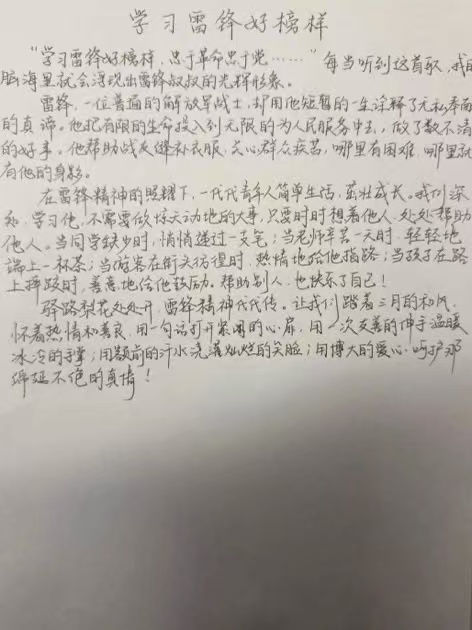 学习雷锋好榜样
"学习雷锋好榜样,忠于革命忠于党……"每当听到这首歌,我的
脑海里就会浮现出雷锋叔叔的光辉形象。
雷锋,一位普通的解放军战士,却用他短暂的一生诠释了无私奉献
的真谛。他把有限的生命投入到无限的为人民服务中去,做了数不清
的好事。他帮助战友缝补衣服,关心群众疾苦,哪里有困难,哪里就
有他的身影。
在雷锋精神的照耀下,一代代青年人简单生活,茁壮成长。我们深
知,学习他,不需要做惊天动地的大事,只要时时想着他人,处处帮助
他人。当同学缺少时,悄悄递过一支笔;当老师辛苦一天时,轻轻地
端上一杯茶;当游客在街头彷徨时,热情地给他指路;当孩子在路
上摔跤时,善意地给他鼓励。帮助别人,也快乐了自己!
驿路梨花处处开,雷锋精神代代传。让我们踏着三月的和风,
怀着热情和善良,用一句话打开紧闭的心扉,用一次友善的伸手温暖
冰冷的手掌;用额前的汗水浇灌灿烂的笑脸;用博大的爱心呵护那
绵延不绝的真情!